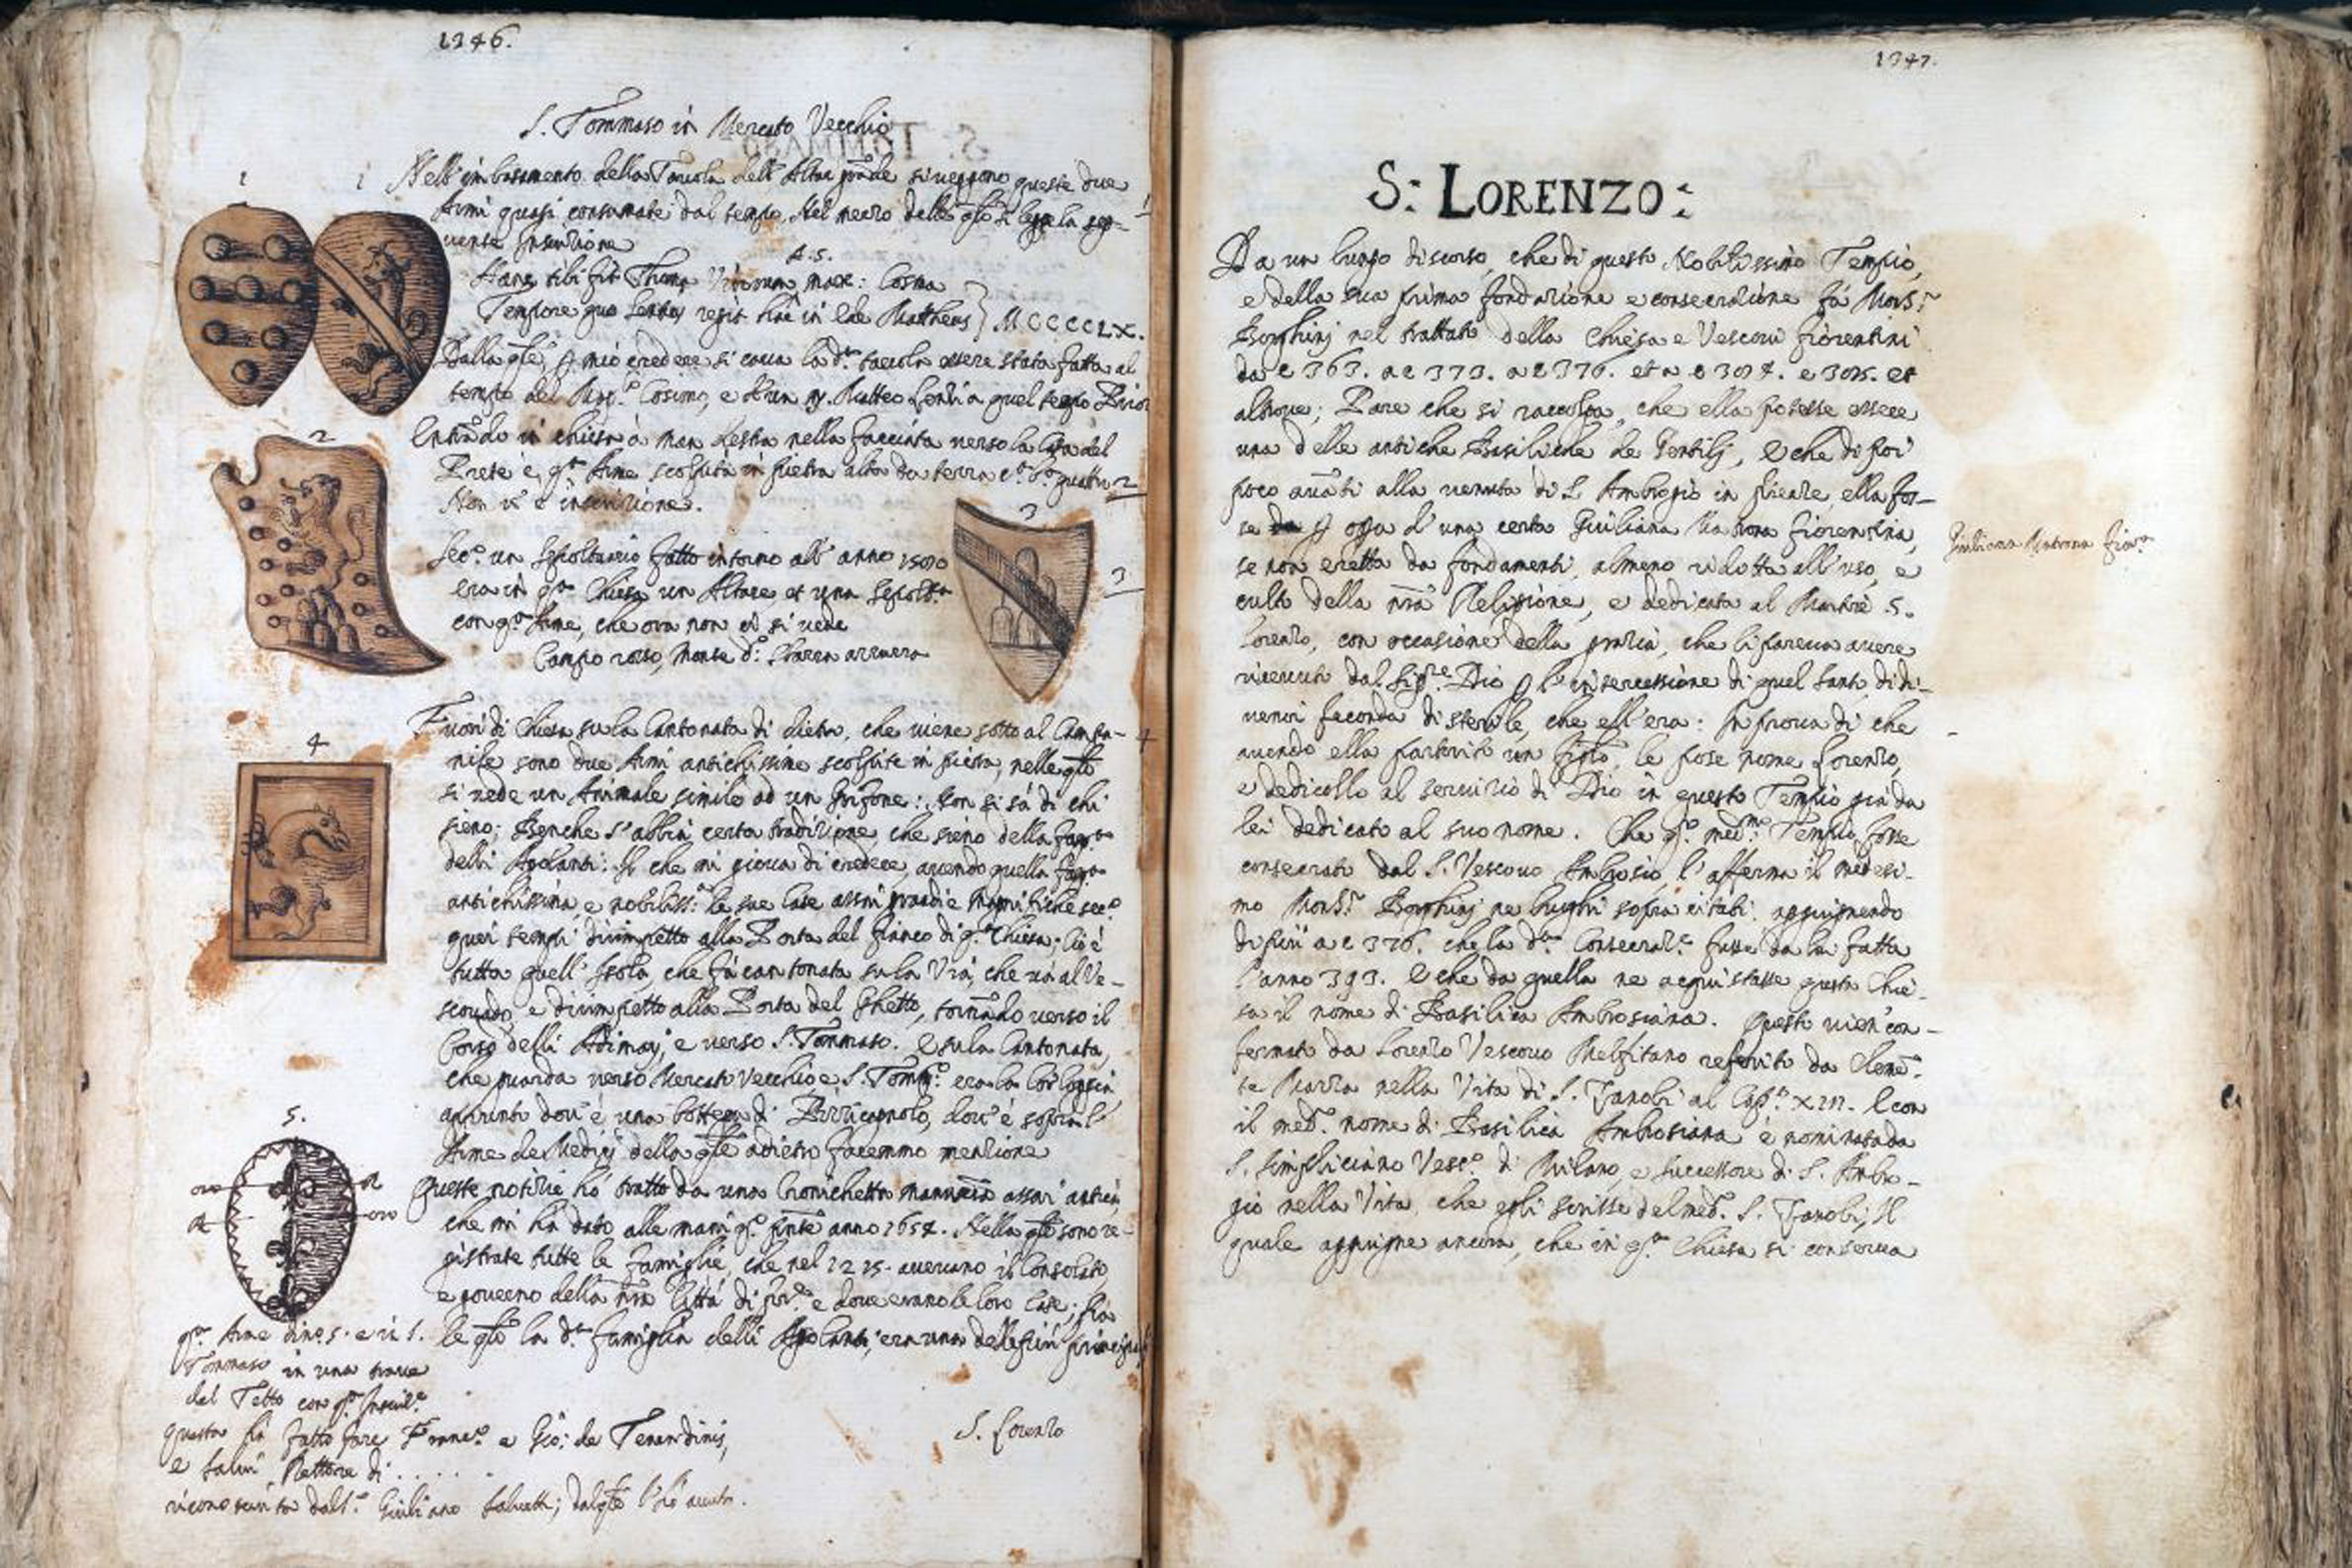 1346.
S. Tommaso in Mercato Vecchio
Nell' imbasamento della Tavola dell' Altar grāde si veggono queste due
Armi quasi consumate dal tempo. Nel mezzo delle qli si legge la seg-
uente Inscrizione
A. S.
Hanc tibi fit Thoma max: Cosma
Tempore quo Lentos regit hāc in ede Mattheus } MCCCCLX.
Dalla qle, p mio credere si cava la d.ta tavola essere stata fatta al
tempo del Mag.co Cosimo, e d'un M. Matteo a quel tempo Prior
Entrādo in chiesa à man destra nella facciata verso la Casa del
Prete è q.ta Arme scolpita in pietra alta da terra quattro 2
Non v' è inscrizione.
Sec.o un Sepoltuario fatto intorno all' anno
era in q.ta Chiesa un Altare, et una Sepolt.ra
con q.ta Arme, che ora non vi si vede
Campo rosso, Monte d.o Sbarra azzurra
Fuori di Chiesa su la Cantonata di dietro, che viene sotto al Campa-
nile sono due Armi antichissime scolpite in pietra, nelle qli
si vede un Animale simile ad un Grifone: Non si sà di chi
sieno; Benche s' abbia certa tradizione, che sieno della fam.a
delli Agolanti: Il che mi giova di credere, avendo quella fam.a
antichissima, e nobiliss.a le sue Case assai grandi e magnifiche sec.o
quei tempi dirimpetto alla Porta del fianco di q.ta Chiesa; Cio è
tutta quell' Isola, che fà cantonata su la Via, che và al Ve-
scovado, e dirimpetto alla Porta del Ghetto, tornādo verso il
Corso delli Adimarj, e verso S. Tommaso. E su la Cantonata,
che guarda verso Mercato Vecchio e S. Tom.o era la lor loggia
appunto dov' è una bottega di Pizzicagnolo, dov' è sopra l'
Arme de Medici della qle adietro facemmo menzione
Queste notizie hò tratto da una Cronichetta assai antica,
che mi hà dato alle mani q.o pnte anno 1654. Nella qle sono re-
gistrate tutte le Famiglie, che nel 1215. avevano il Consolato,
e governo della nrā Città di Fior.e e dove erano le loro Case; frà
le qli la d.ta famiglia delli Agolanti, era una delle più principali
1
1
2
3
4
5.
oro
A
A
oro
q.ta Arme di n.o 5. è in S.
Tommaso in una trave
del Tetto con q.ta Inscriz.e
Questa hà fatto fare e Gio: de Tenardinis,
e Salvi Rettore di . . . . .
riconosciuta dal S.r Giuliano ; dal qle l' hò avuto.
S. Lorenzo
1347.
S: LORENZO:
Da un lungo discorso, che di questo Nobilissimo Tempio,
e della sua prima fondazione e consecrazione fà Mons.r
Borghinj nel trattato della Chiesa e Vescovi Fiorentini
da c 363. a c 373. a c 376. et a c et
altrove; Pare che si raccolga, che ella potesse essere
una delle antiche Basiliche de Gentilj, e che di poi
poco avāti alla venuta di S. Ambrogio in Firenze, ella fos-
se p opa d' una certa Giuliana Matrona Fiorentina,
se non eretta da fondamenti, almeno ridotta all' uso, e
culto della nrā Religione, e dedicata al Martire S.
Lorenzo, con occasione della grazia, che li pareva avere
ricevuta dal Sig.re Dio p l' intercessione di quel Santo di di-
venir feconda di sterile, che ell' era: In prova di che
avendo ella partorito un figlo, le pose nome Lorenzo,
e dedicollo al servizio di Dio in questo Tempio già da
lei dedicato al suo nome. Che q.o med.mo Tempio, fosse
consecrato dal S. Vescovo Ambrosio, l' afferma il medesi-
mo Mons.r Borghinj ne luoghi sopra citati, aggiugnendo
di più a c 376. che la d.ta Consecraz.e fusse da lui fatta
l' anno 393. e che da quella ne acquistasse questa Chie-
sa il nome di Basilica Ambrosiana. Questo vien con-
fermato da Lorenzo Vescovo Melfitano referito da Clemē-
te Mazza nella Vita di S. Zanobi al Cap.o E con
il med.o nome di Basilica Ambrosiana è nominata da
S. Simpliciano Vesc.o di Milano, e successore di S. Ambro-
gio nella Vita, che egli scrisse del med.o S. Zanobi; Il
quale aggiugne ancora, che in q.ta Chiesa si conserva
Giuliana Matrona Fior.a